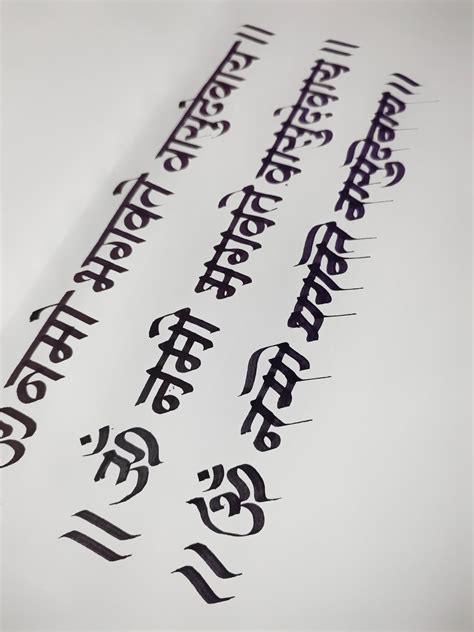 ॐ नमो भगवते वासुदेवाय ॥
॥ ॐ नमो भगवते वासुदेवाय ॥
॥ ॐ नमो भगवते वासुदेवाय ॥